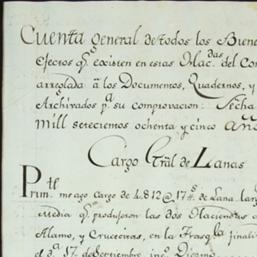 Cuenta general de todos los Biene
Efectos q.s existen en estas Hac.das del Con
arreglada â los Documentos, Quadernos, y
Archivados p.a su comprovacion: fecha
mill setecientos ochenta y cinco Año
Cargo Gräl de Lanas
Prim.te me ago cargo de 4.812 @ 17 de Lana lar
media q.e produjeron las dos Haciendas
Alamo, y Cruceiras, en la Frasq.a finali
el d.a 17 de Septiembre Diezmo